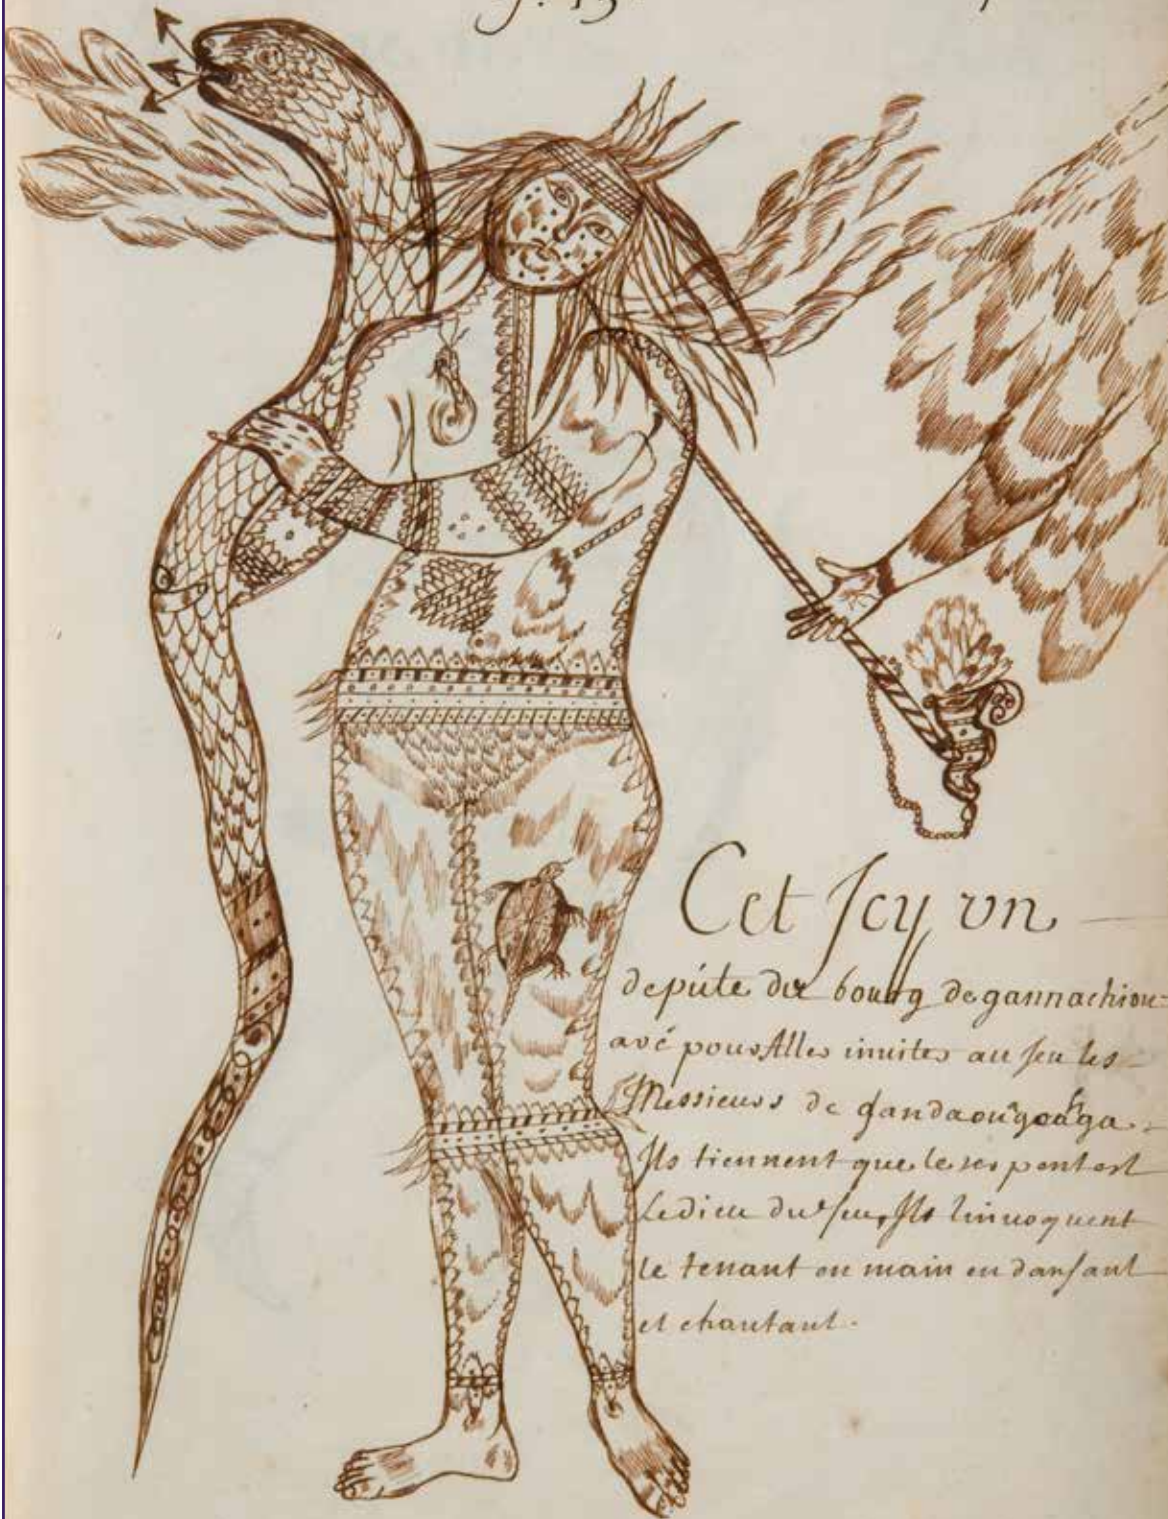 Cet Jcy vn
depúte du bourg de gannachiou=
avé pour Aller inuiter au Jeu les
Messieurs de gandaoùgoahga.
Jls tiennent que le serpent est
Le dieu du feu, Jls linuoquent
le tenant en main en dansant
et chantant.